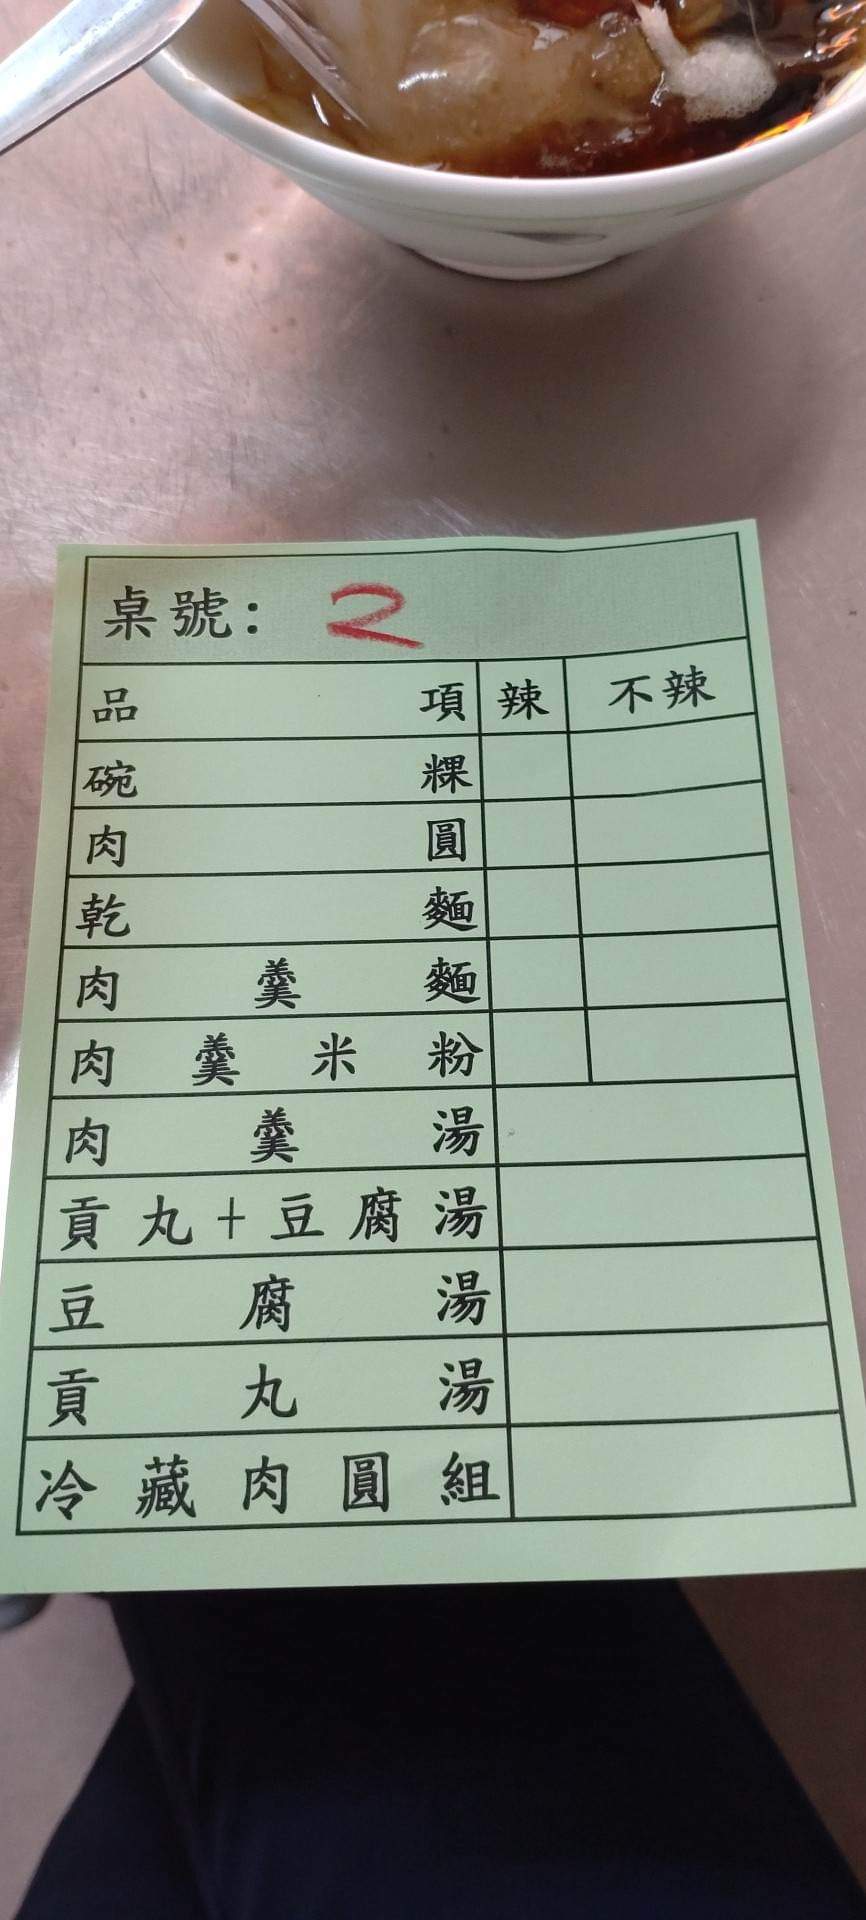 桌號: 2
品項 辣 不辣
碗粿
肉圓
乾麵
肉羹麵
肉羹米粉
肉羹湯
貢丸+豆腐湯
豆腐湯
貢丸湯
冷藏肉圓組